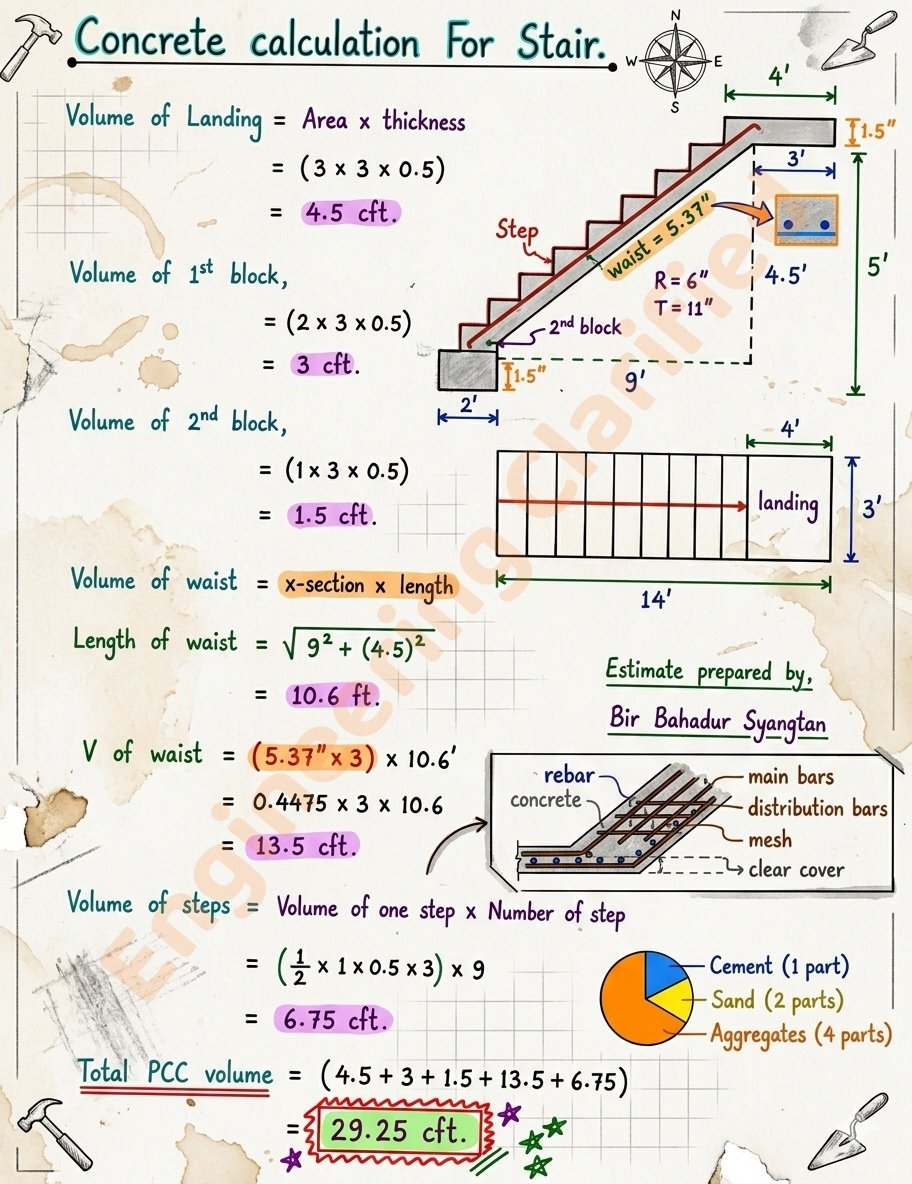 Concrete calculation For Stair.
N
W E
S
Volume of Landing = Area x thickness
= (3 x 3 x 0.5)
= 4.5 cft.
Volume of 1st block,
= (2 x 3 x 0.5)
= 3 cft.
Volume of 2nd block,
= (1 x 3 x 0.5)
= 1.5 cft.
Volume of waist = x-section x length
Length of waist = √ 9² + (4.5)²
= 10.6 ft.
V of waist = (5.37" x 3) x 10.6'
= 0.4475 x 3 x 10.6
= 13.5 cft.
Volume of steps = Volume of one step x Number of step
= (1/2 x 1 x 0.5 x 3) x 9
= 6.75 cft.
Total PCC volume = (4.5 + 3 + 1.5 + 13.5 + 6.75)
= 29.25 cft.
4'
1.5"
3'
Step
waist = 5.37"
R = 6"
T = 11"
4.5'
5'
2nd block
1.5"
9'
2'
4'
landing
3'
14'
Estimate prepared by,
Bir Bahadur Syangtan
rebar
concrete
main bars
distribution bars
mesh
clear cover
Cement (1 part)
Sand (2 parts)
Aggregates (4 parts)
Engineering Clarified